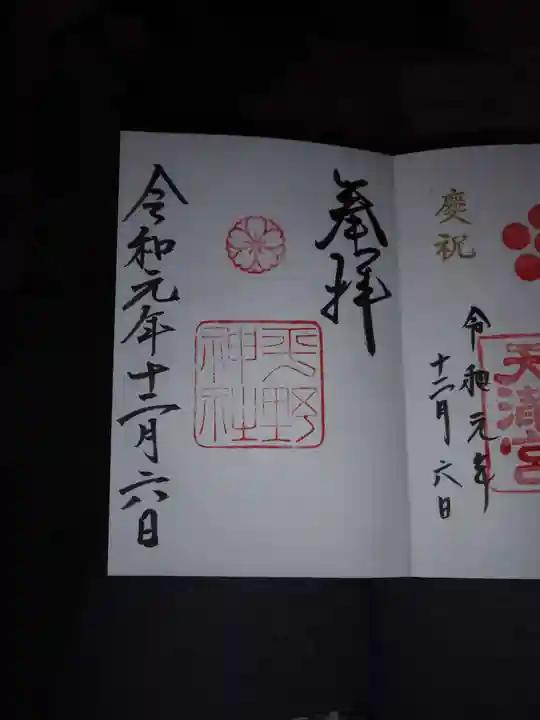 慶祝
天満宮
令和元年
十二月六日
奉拝
平野
神社
令和元年十二月六日